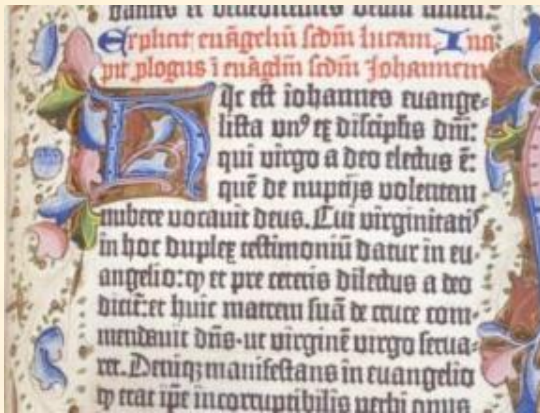 dantes et benedicentes deum amen.
Explicit euāgeliū scdm̄ lucam. Inci
pit ꝓlogus ī euāgliū scdm̄ Johannem
Hic est iohannes euange-
lista unꝰ ex discipĺis dn̄i:
qui virgo a deo electus ē:
quē de nuptijs volentem
nubere vocavit deus. Cui virginitatꝭ
in hoc duplex testimoniū datur in eu-
angelio: ꝙ et pre ceteris dilectus a deo
dicit̄: et huic matrem suā de cruce com-
mendavit dn̄s· ut virginē virgo serva-
ret. Deniqꝫ manifestans in euangelio
ꝙ erat ip̄e incorruptibilis verbi opus